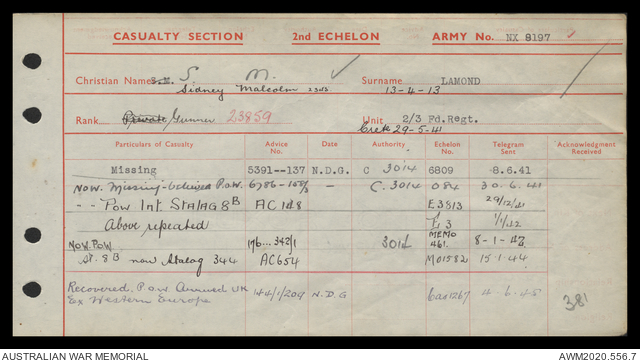 CASUALTY SECTION 2nd ECHELON ARMY No. NX 8197
Christian Names S. M. Surname LAMOND
Sidney Malcolm 13-4-13
Rank Private Gunner 23859 Unit 2/3 Fd.Regt.
Crete 29-5-41
Particulars of Casualty Advice No. Date Authority Echelon No. Telegram Sent Acknowledgment Received
Missing 5391--137 N.D.G. C 3014 6809 8.6.41
NOW. Missing-believed P.O.W. 6786-158/3 — C.3014 084 30.6.41
-- Pow Int STALAG 8B AC 148 E3813 29/12/41
Above repeated E 3 1/1/42
NOW. POW. 176...342/1 3014 MEMO 461. 8-1-43
St. 8B now Stalag 344 AC654 M01582 15.1.44
Recovered. P.O.W Arrived UK 144/1/209 N.D.G 4.6.45
Ex Western Europe
381
AUSTRALIAN WAR MEMORIAL AWM2020.556.7